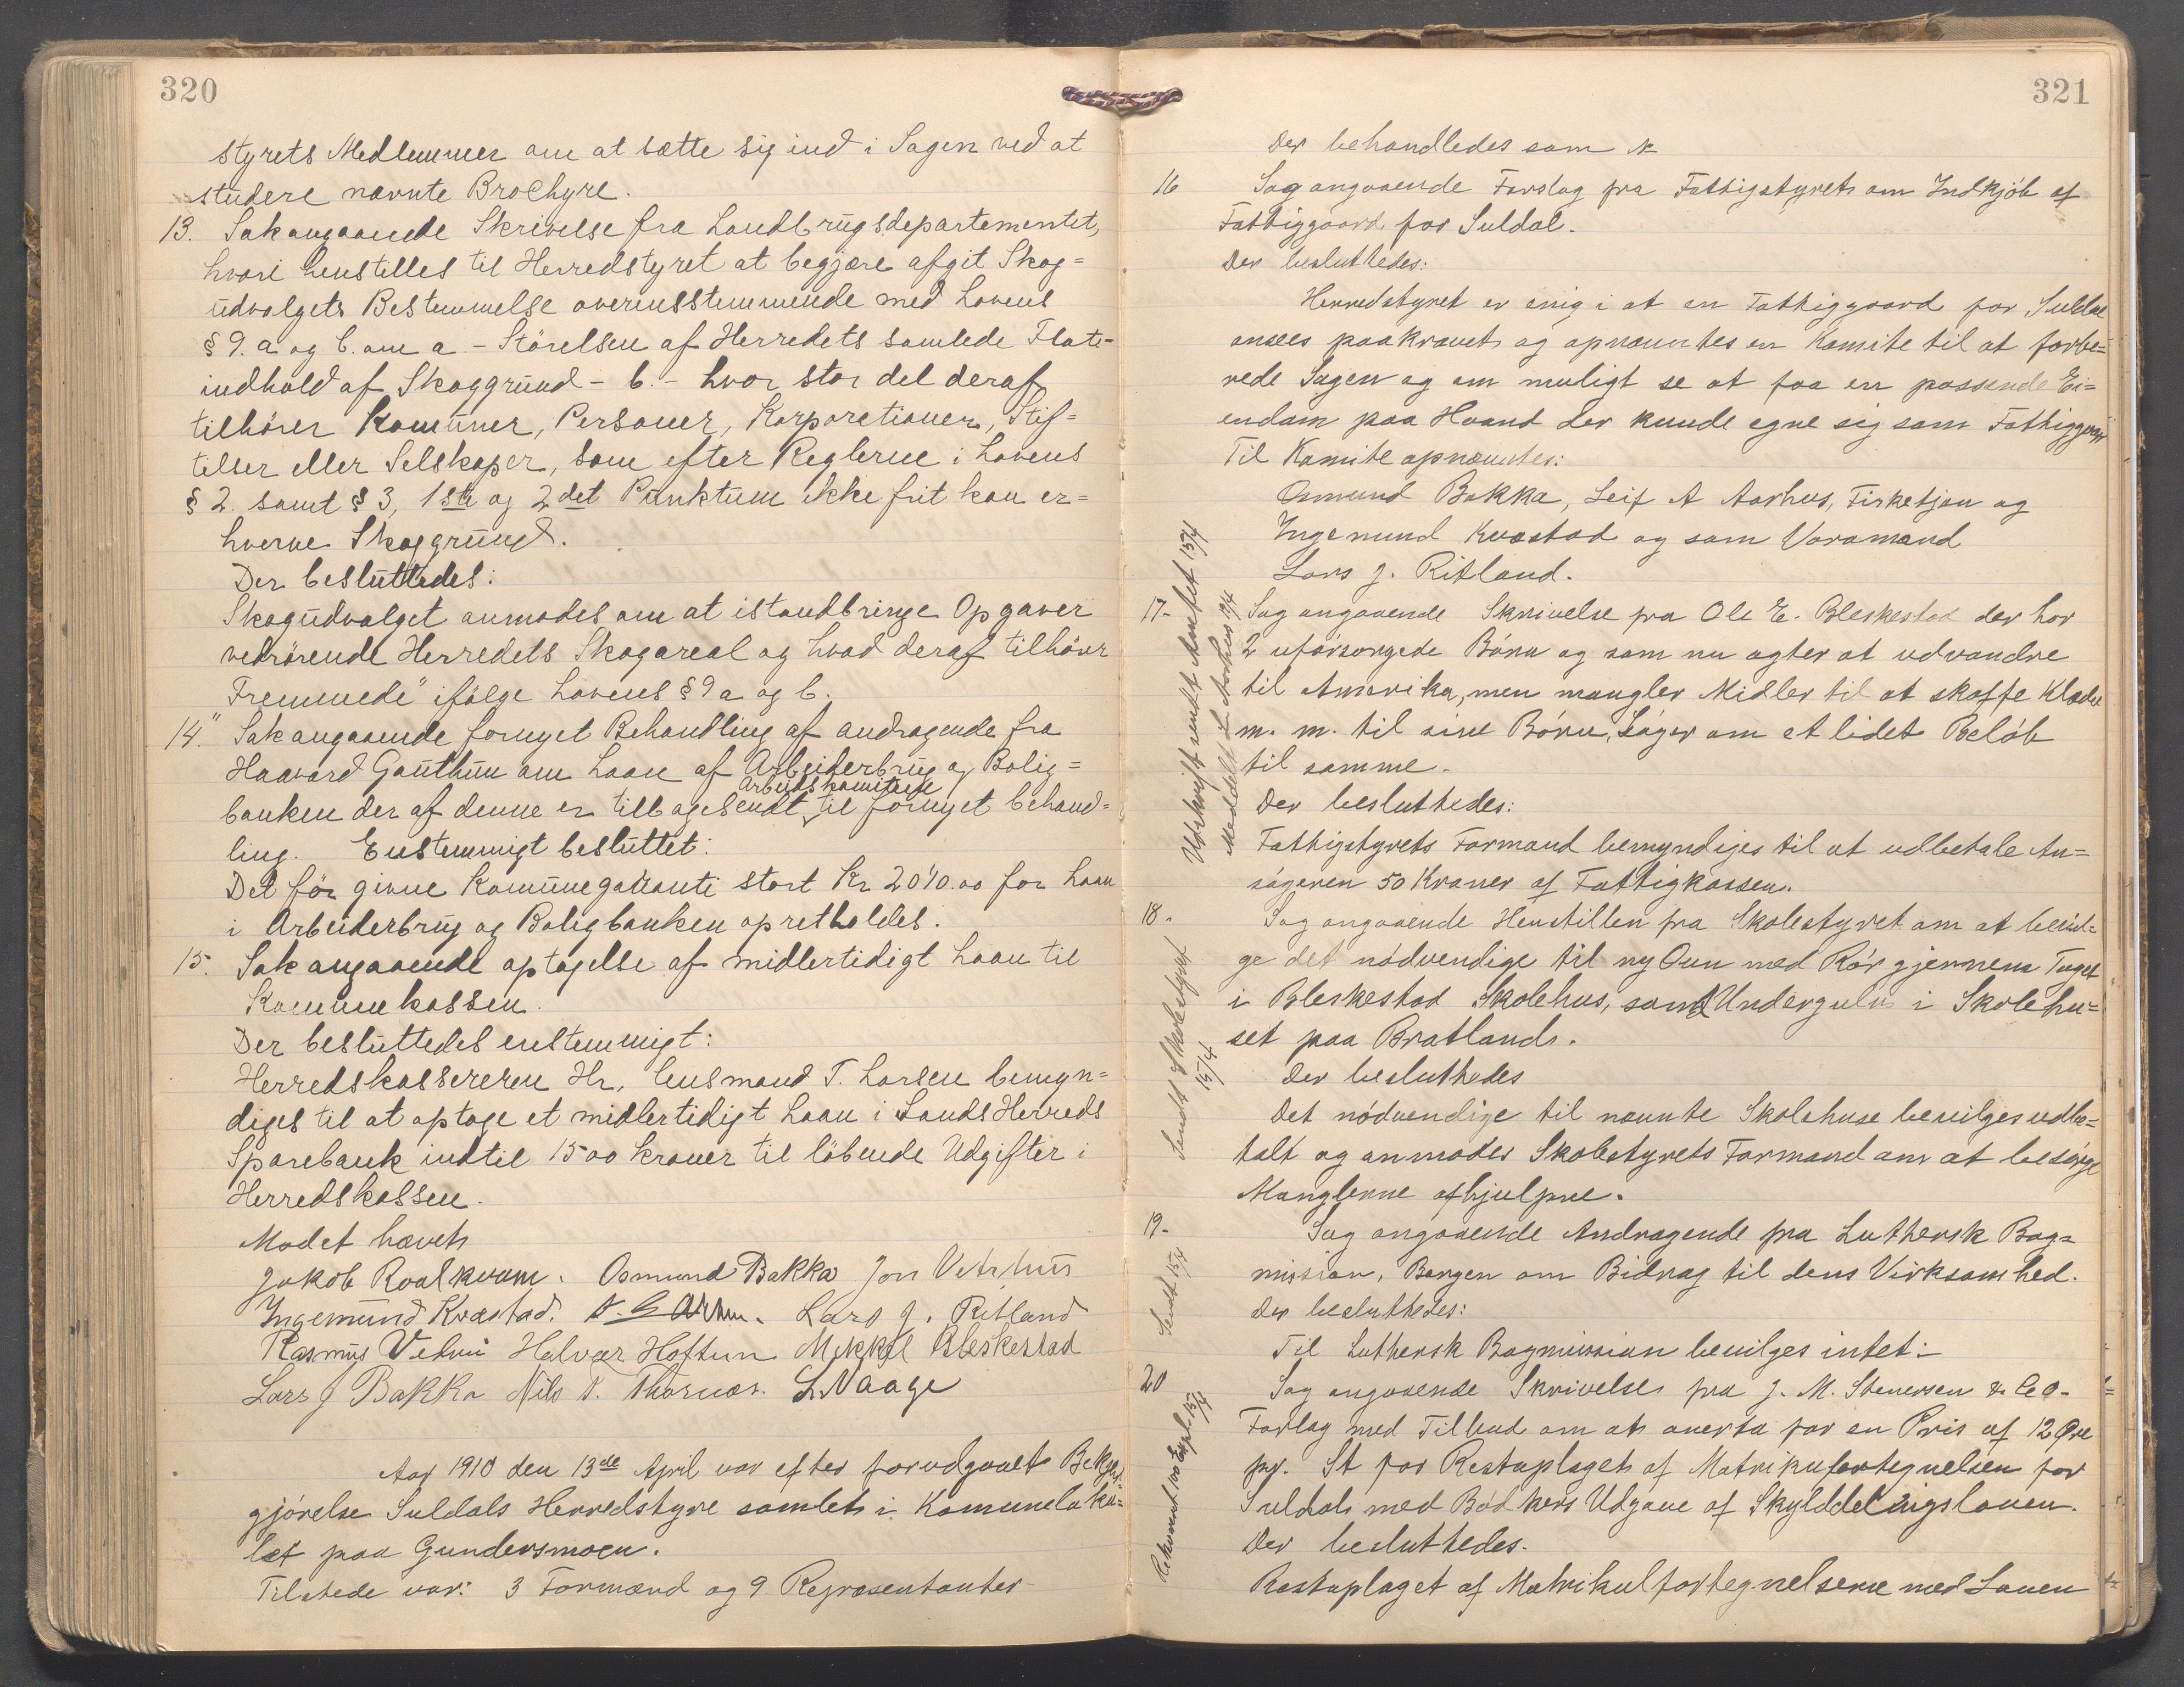 320
styrets Medlemmer om at sætte sig ind i Sagen ved at
studere nævnte Brochyre.
13. Sak angaaende Skrivelse fra Landbrugsdepartementet,
hvori henstilles til Herredstyret at begjære afgit Skog=
udvalgets Bestemmelse overensstemmende med Lovens
§ 9. a og b. om a - Störelsen af Herredets samlede Flate-
indhold af Skoggrund - b. - hvor stor del deraf
tilhörer Komuner, Personer, Korporationer, Stif=
telser eller Selskaper, som efter Reglerne i Lovens
§ 2. samt § 3, 1ste og 2det Punktum ikke frit kan er=
hverve Skoggrund.
Der besluttedes:
Skogudvalget anmodes om at istandbringe Opgaver
vedrörende Herredets Skogareal og hvad deraf tilhörer
Fremmede" ifölge Lovens § 9 a og b.
14." Sak angaaende fornyet Behandling af andragende fra
Haavard Gauthun om Laan af Arbeiderbrug og Bolig=
Arbeidskomitede
banken der af denne er tilbagesendt til fornyet behand=
ling. Enstemmigt besluttet:
Det för givne Komunegaranti stort Kr 2040.00 for Laan
i Arbeiderbrug og Boligbanken opretholdes.
15. Sak angaaende optagelse af midlertidigt Laan til
Komunekassen.
Der besluttedes enstemmigt:
Herredskassereren Hr. Gusmand T. Larsen bemyn=
diges til at optage et midlertidigt Laan i Sands Herreds
Sparebank indtil 1500 Kroner til löbende Udgifter i
Herredskassen.
Modet hævet
Jakob Roalkvam. Osmund Bakka Jon Vetrhus
Ingemund Kvæstad. Lars J. Ritland
Rasmus Halvor Hoftun Mikkel Bleskestad
Lars J Bakka Nils T. Thornæs. L. Vaage
Aar 1910 den 13de April var efter forudgaaet Bekjent=
gjörelse Suldals Herredstyre samlet i Komuneloka=
let paa Gundersmoen.
Tilstede var: 3 Formænd og 9 Repræsentanter
321
Der behandledes som №
16 Sag angaaende Forslag fra Fattigstyret om Indkjöb af
Fattiggaard for Suldal.
Der besluttedes:
Herredstyret er enig i at en Fattiggaard for Suldal
ansees paakrævet og opnævntes en Komite til at forbe=
rede Sagen og om muligt se at faa en passende Ei=
endom paa Haand der kunde egne sig som Fattiggaard
Til Komite opnævntes:
Osmund Bakka, Leif A Aarhus, Fisketjon og
Ingemund Kvæstad og som Varamand
Lars J. Ritland.
Udskrift sendt Amtet 15/4
Meddelt L. Aarhus 19/4
17- Sag angaaende Skrivelse fra Ole E. Bleskestad der har
2 uforsorgede Börn og som nu agter at udvandre
til Amerika, men mangler Midler til at skaffe Klæder
m. m. til sine Börn, Söger om et lidet Belöb
til samme.
Der besluttedes:
Fattigstyrets Formand bemyndiges til at udbetale An=
sögeren 50 Kroner af Fattigkassen.
18. Sag angaaende Henstillen fra Skolestyret om at bevil=
ge det nödvendige til ny Ovn med Rör gjennem Taget
i Bleskestad Skolehus, samt Undergulv i Skolehu=
set paa Bratlands.
Sendt Skolestyret
15/4
Der besluttedes
Det nödvendige til nævnte Skolehuse bevilges udbe=
talt og anmodes Skolestyrets Formand om at besörge
Manglerne afhjulpne.
19- Sag angaaende Andragende fra Luthersk Bog=
mission, Bergen om Bidrag til dens Virksomhed.
Sendt 15/4
Der besluttedes:
Til Luthersk Bogmission bevilges intet:-
20 Sag angaaende Skrivelse fra J. M. Stenersen & Co-
Forlag med Tilbud om at overta for en Pris af 12 Øre
pr. St for Restoplaget af Matrikufortegnelsen for
Suldal med Bödkers Udgave af Skylddelingsloven.
Rekvireret 100 Expl. 15/4
Der besluttedes.
Restoplaget af Matrikulfortegnelserne med Loven